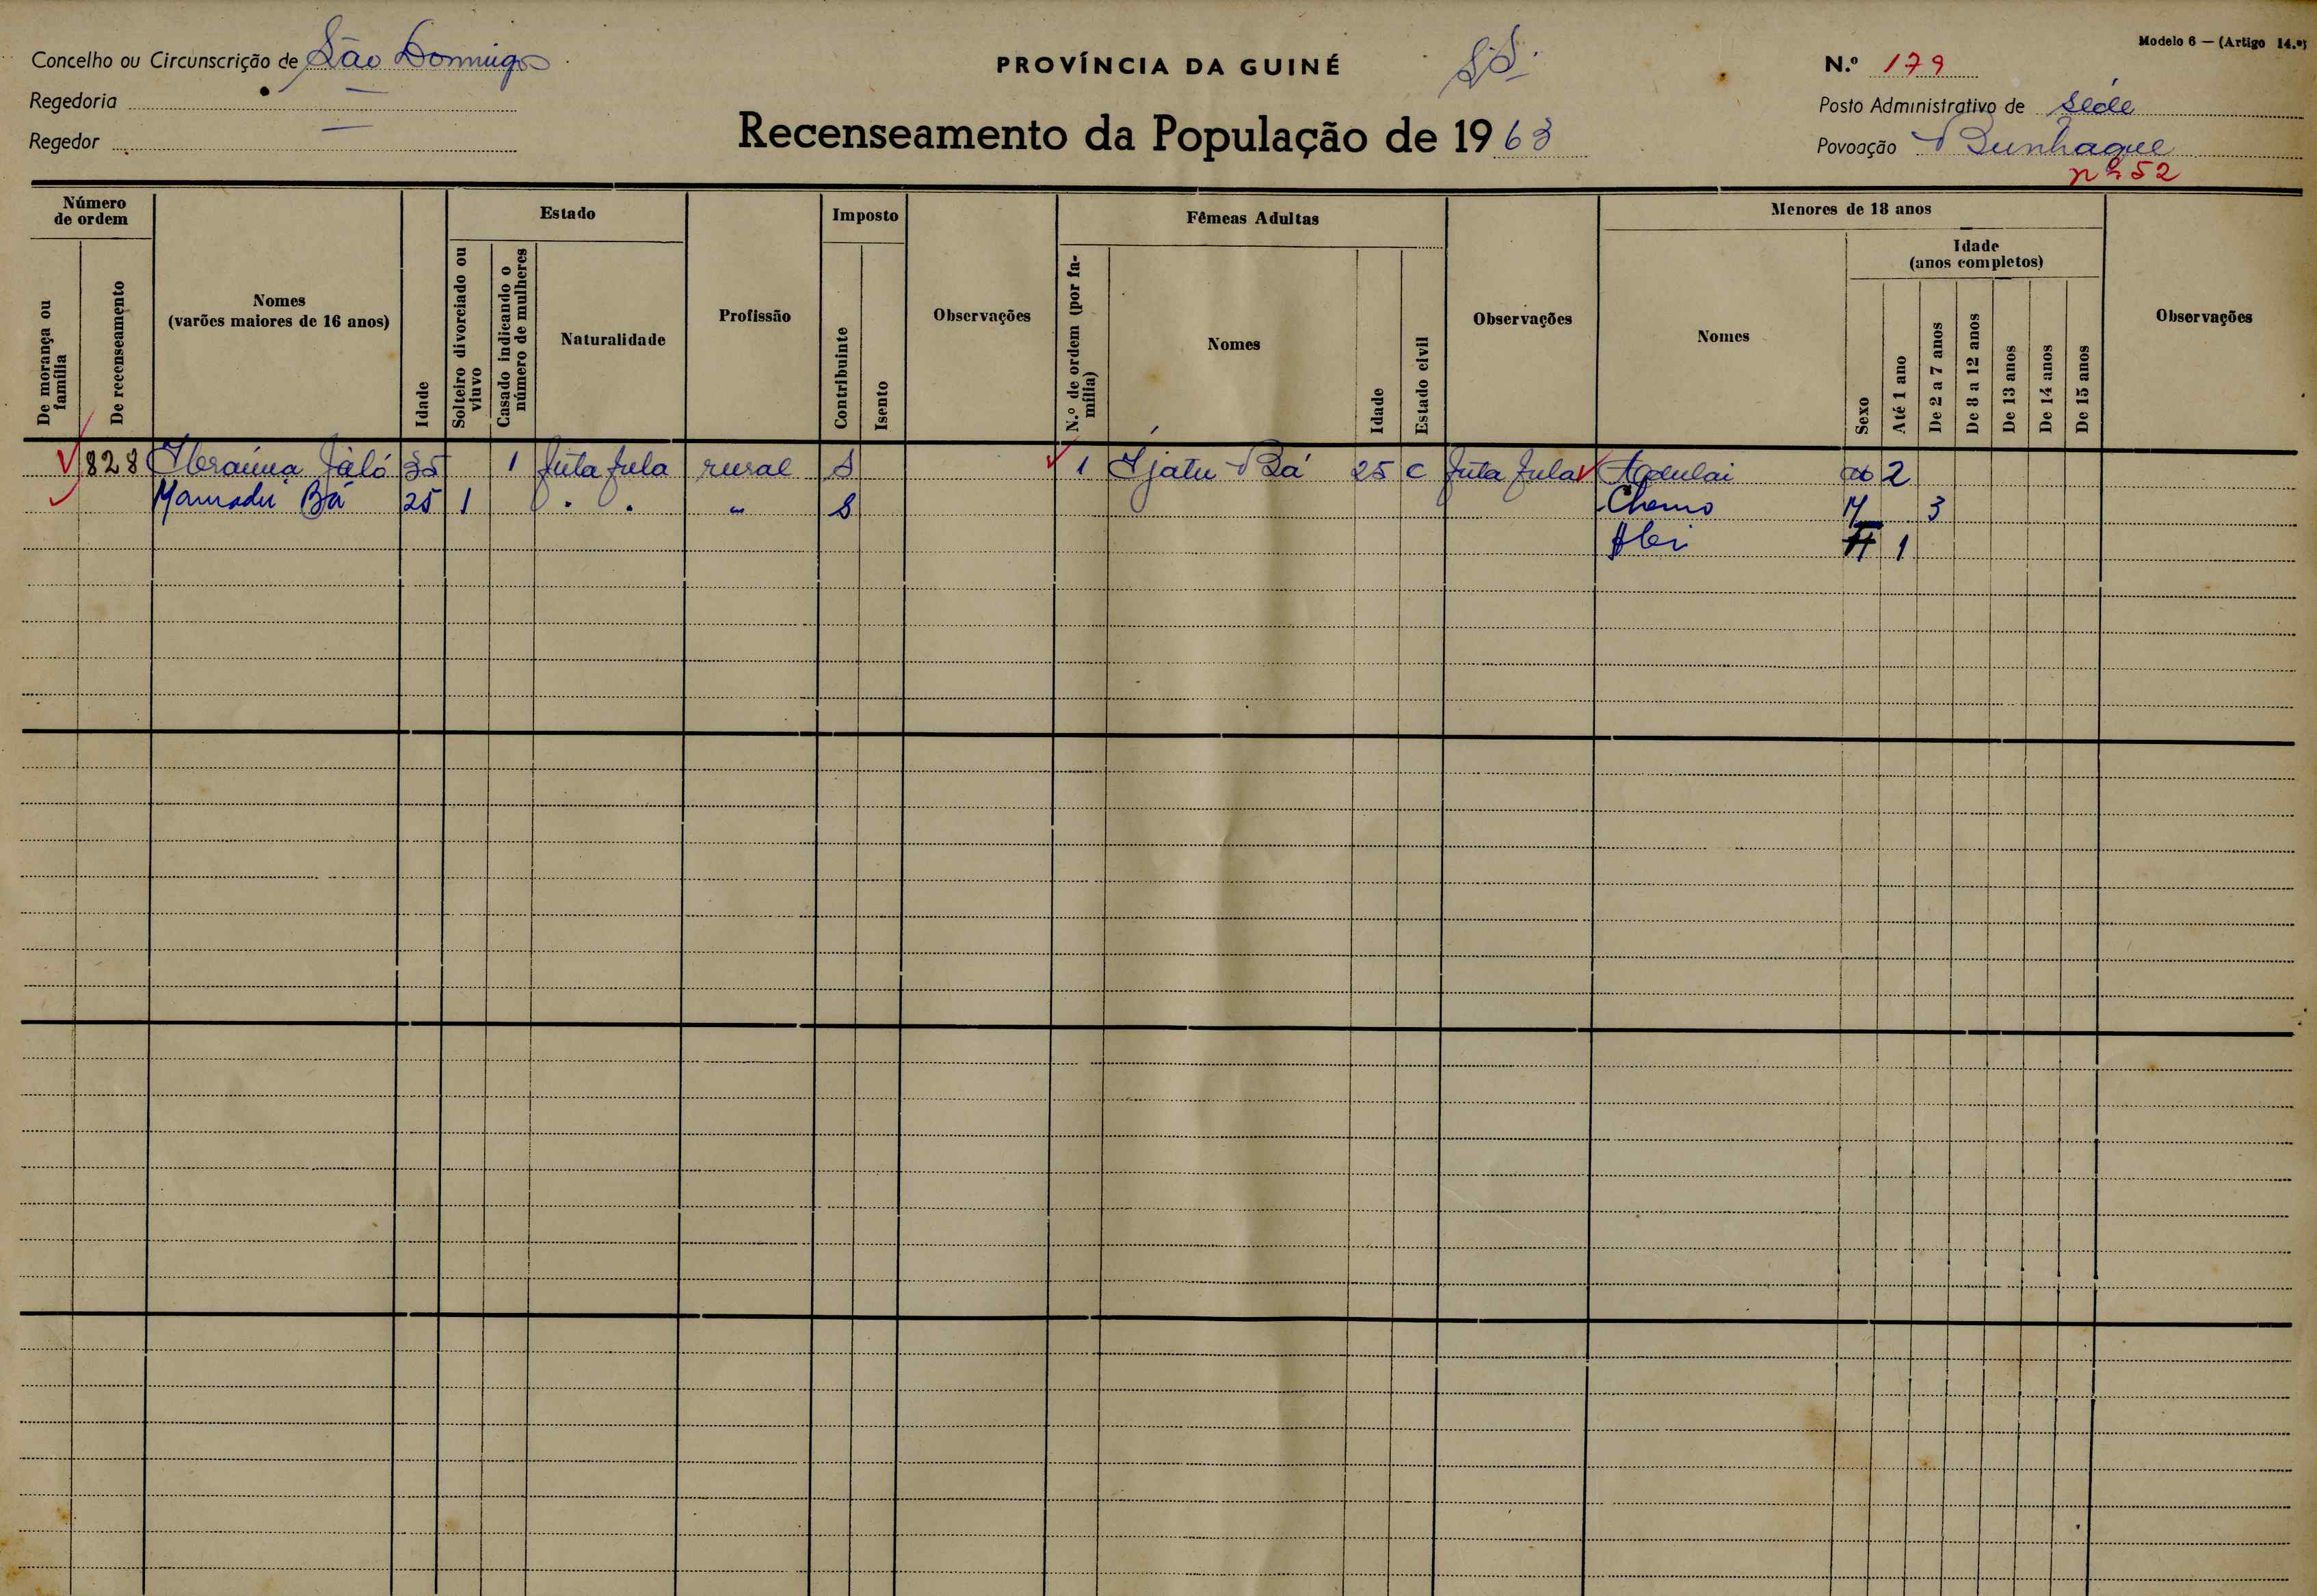 Modelo 6 — (Artigo 14.º)
Concelho ou Circunscrição de São Domingos
PROVÍNCIA DA GUINÉ
N.º 179
Regedoria —
Posto Administrativo de Séde
Regedor —
Recenseamento da População de 1963
Povoação Bunhaque
nº 52
Número de ordem
De morança ou família
De recenseamento
Nomes
(varões maiores de 16 anos)
Idade
Estado
Solteiro divorciado ou viuvo
Casado indicando o número de mulheres
Naturalidade
Profissão
Imposto
Contribuinte
Isento
Observações
Fêmeas Adultas
N.º de ordem (por família)
Nomes
Idade
Estado civil
Observações
Menores de 18 anos
Nomes
Sexo
Idade
(anos completos)
Até 1 ano
De 2 a 7 anos
De 8 a 12 anos
De 13 anos
De 14 anos
De 15 anos
Observações
828 Ibraima Jaló 35 1 futa fula rural S 1 Ijatu Bá 25 C futa fula Adulai 2
Mamadú Bá 25 1 " " " S Cherno M 3
Abi F 1